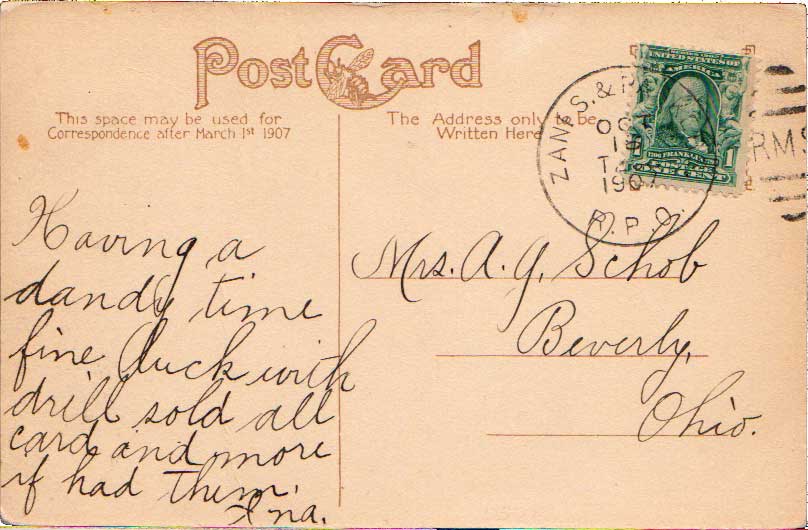 Post Card
This space may be used for
Correspondence after March 1st 1907
The Address only to be
Written Here
SERIES 1902
UNITED STATES OF
AMERICA
1 FRANKLIN 1
POSTAGE
ONE CENT
ZANES. &
OCT
1907
R.P.O.
RMS
Having a
dandy time
fine luck with
drill sold all
card and more
if had them.
Ina.
Mrs. A. G. Schob
Beverly,
Ohio.